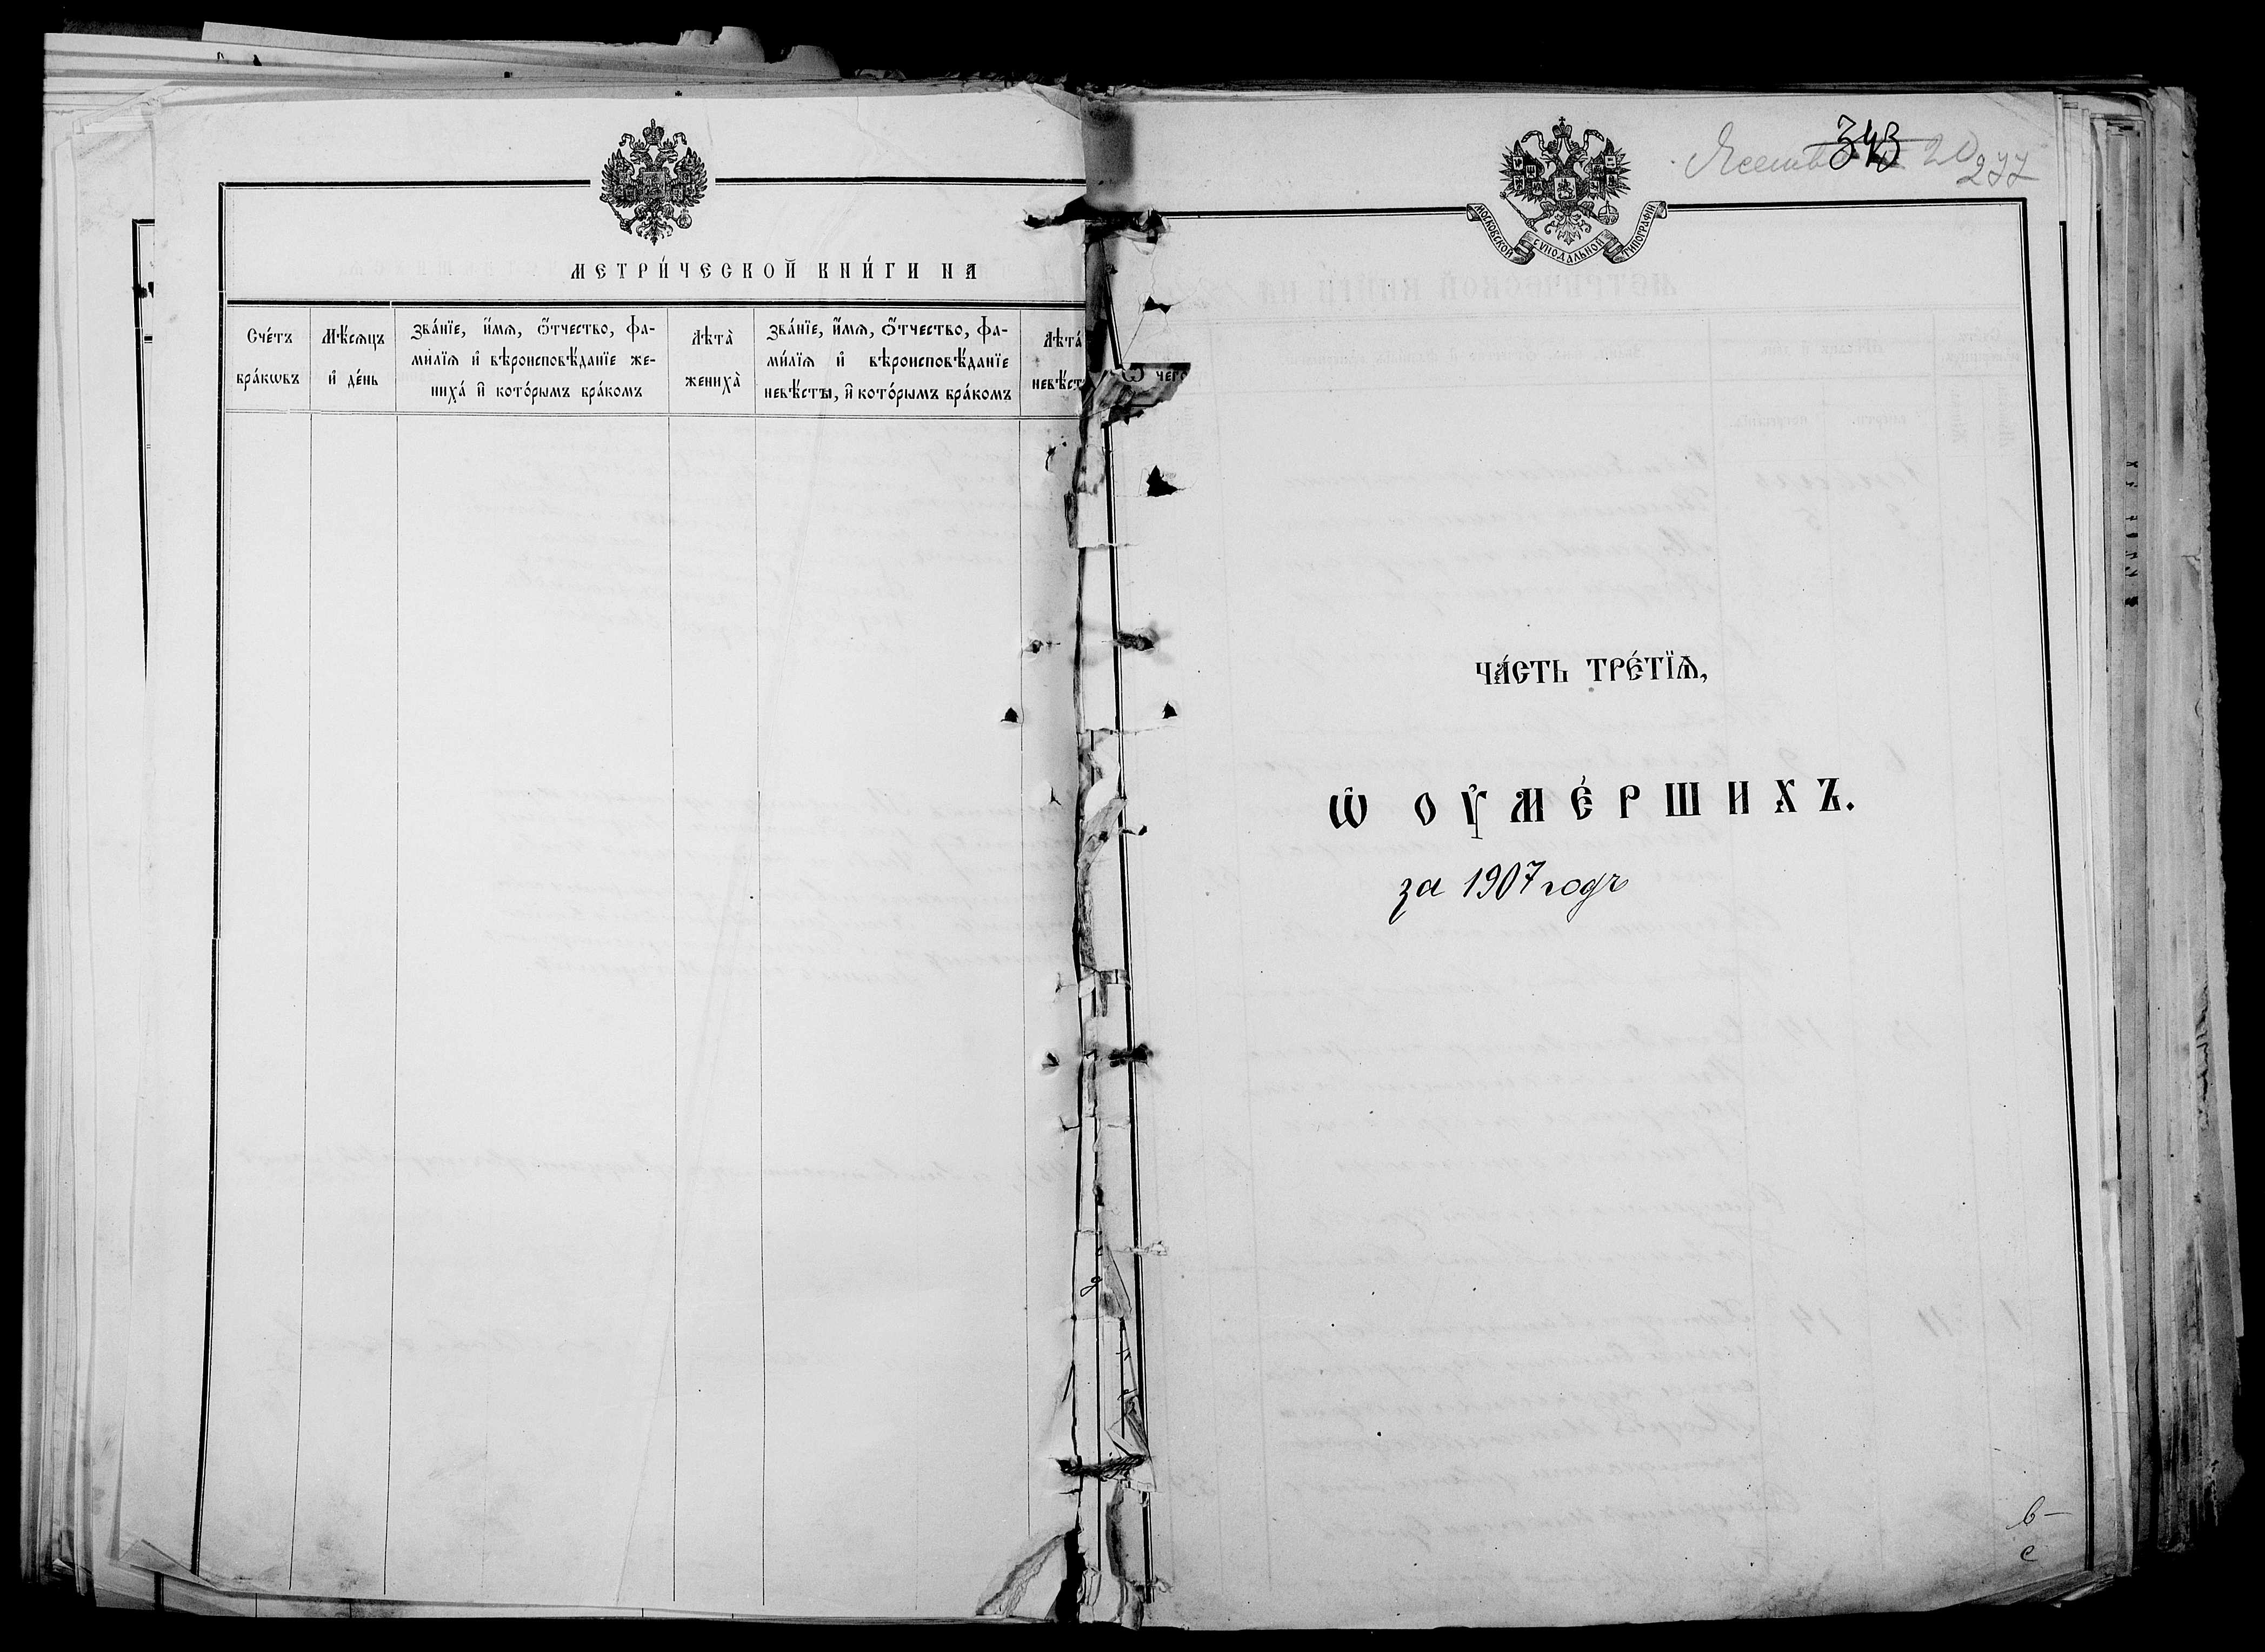 МЕТРИ́ЧЕСКОЙ КНИ́ГИ НА
Сче́тъ
бра́кѡвъ
Мѣ́сѧцъ
и҆ де́нь
Зва́нїе, и҆́мѧ, ѻ҆́тчество, фа-
ми́лїѧ и҆ вѣроисповѣ́данїе же-
ниха́ и҆ кото́рымъ бра́комъ
Лѣта̀
жениха̀
Зва́нїе, и҆́мѧ, ѻ҆́тчество, фа-
ми́лїѧ и҆ вѣроисповѣ́данїе
невѣ́сты, и҆ кото́рымъ бра́комъ
Лѣта̀
невѣ́ст
Ѿ чего
343
20
277
МОСКОВСКОЙ СѴНОДАЛЬНОЙ ТИПОГРАФІИ
ЧА́СТЬ ТРЕ́ТЇѦ,
Ѡ҆ ОУ҆МЕ́РШИХЪ.
за 1907 годъ